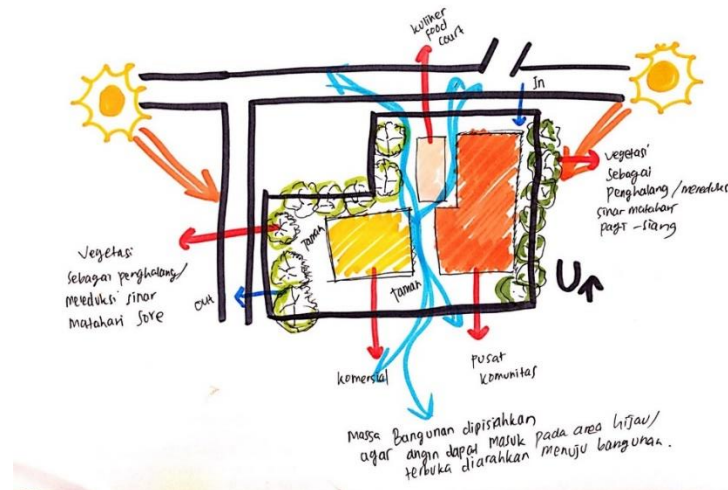 kuliner
food
court
In
vegetasi
sebagai
penghalang/mereduksi
sinar matahari
pagi - siang
Taman
Vegetasi
sebagai penghalang/
mereduksi sinar
matahari sore
OUT
Taman
U
komersial
pusat
komunitas
Massa Bangunan dipisahkan
agar angin dapat masuk pada area hijau/
terbuka diarahkan menuju bangunan.